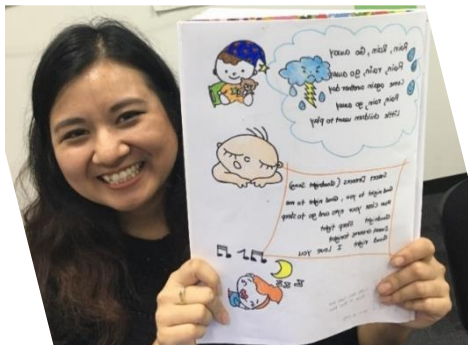 Rain, Rain, Go away
Rain, rain, go away
Come again another day
Rain, rain, go away
Little children want to play
Sweet Dreams (Goodnight Song)
Good night to you, Good night to me
Now close your eyes and go to sleep
Goodnight
Sleep tight
Sweet dreams tonight
Good night
I Love You